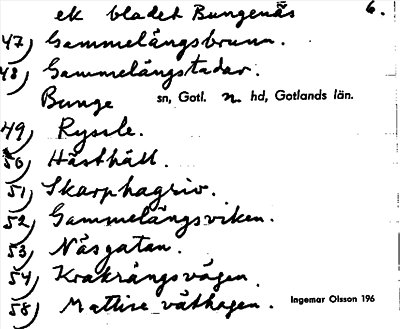 ek bladet Bungenäs 6.
47) Gammelängsbrunn.
48) Gammelängstadar.
Bunge sn, Gotl. n hd, Gotlands län.
49) Ryssle.
50) Hästhäll.
51) Skarphagsriv.
52) Gammelängsviken.
53) Näsgatan.
54) Kråkrångsvägen
55) Mattise våthagen. Ingemar Olsson 196